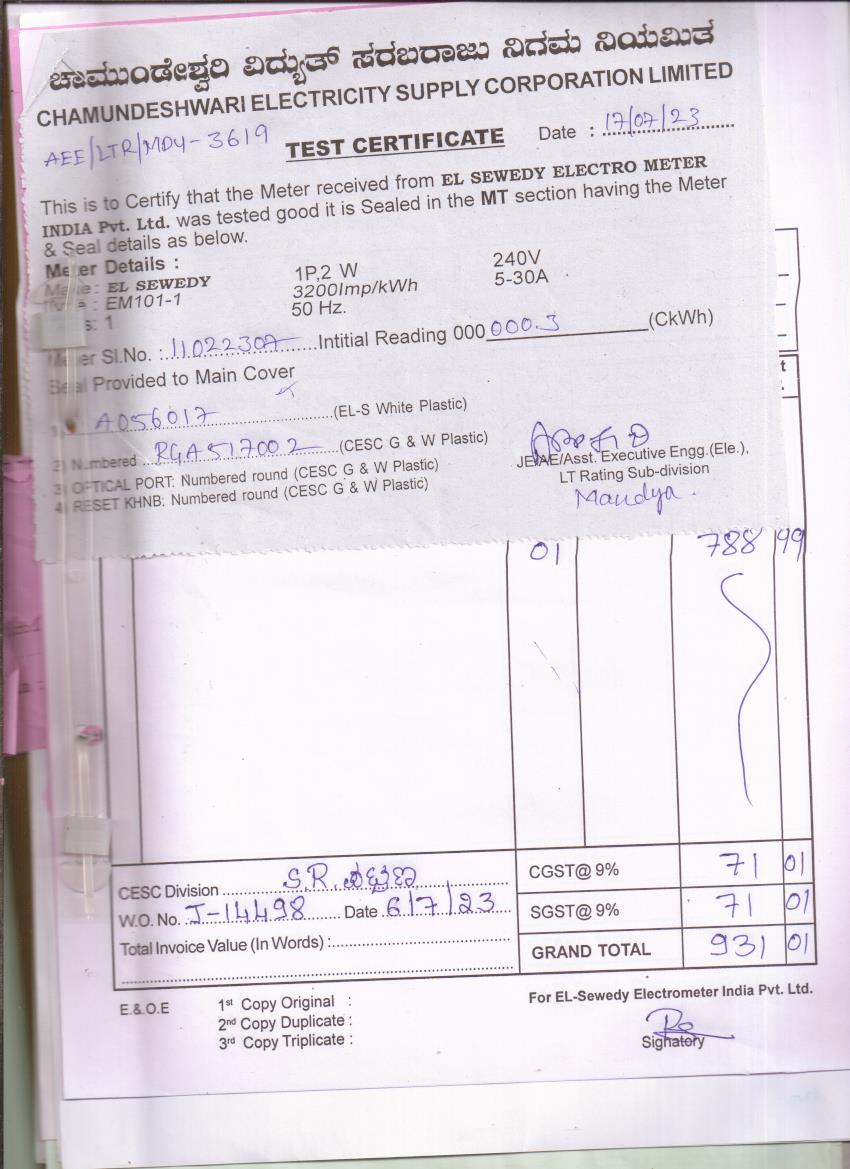 ಚಾಮುಂಡೇಶ್ವರಿ ವಿದ್ಯುತ್ ಸರಬರಾಜು ನಿಗಮ ನಿಯಮಿತ
CHAMUNDESHWARI ELECTRICITY SUPPLY CORPORATION LIMITED
AEE/LTR/MDY-3619 TEST CERTIFICATE Date : 17/07/23
This is to Certify that the Meter received from EL SEWEDY ELECTRO METER
INDIA Pvt. Ltd. was tested good it is Sealed in the MT section having the Meter
& Seal details as below.
Meter Details :
Make : EL SEWEDY 1P,2 W 240V
: EM101-1 3200Imp/kWh 5-30A
: 1 50 Hz.
Meter Sl.No. : 11022307 Intitial Reading 000 000.3 (CkWh)
Seal Provided to Main Cover
A056017 (EL-S White Plastic)
2) Numbered RGA517002 (CESC G & W Plastic)
3) OPTICAL PORT: Numbered round (CESC G & W Plastic)
4) RESET KHNB: Numbered round (CESC G & W Plastic)
JE/AE/Asst. Executive Engg.(Ele.),
LT Rating Sub-division
Mandya.
01 788 49
CESC Division S.R. CGST@ 9% 71 01
W.O. No. J-14498 Date 6/7/23 SGST@ 9% 71 01
Total Invoice Value (In Words) : GRAND TOTAL 931 01
E.&.O.E 1st Copy Original : For EL-Sewedy Electrometer India Pvt. Ltd.
2nd Copy Duplicate :
3rd Copy Triplicate : Signatory